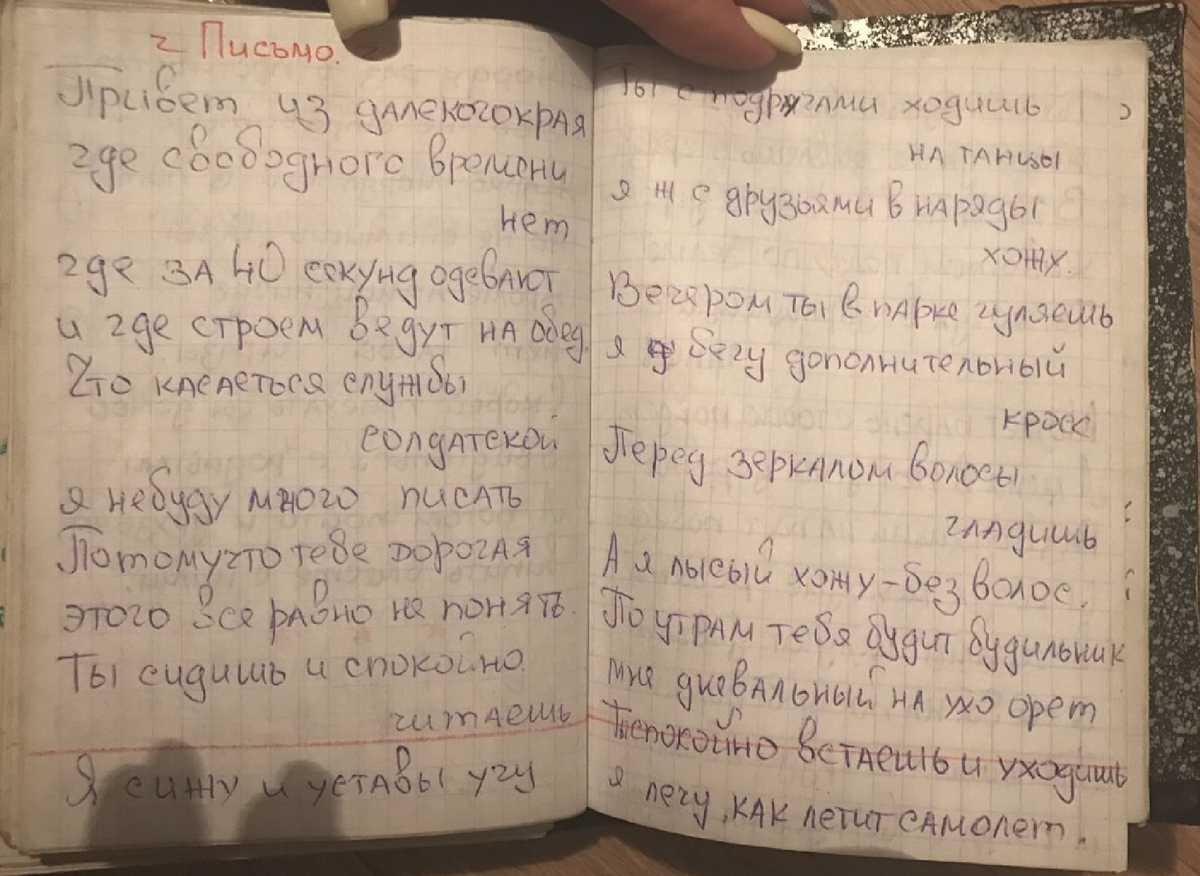 Письмо.
Привет из далекогокрая
где свободного времени
нет
где за 40 секунд одевают
и где строем ведут на обед.
Что касаеться службы
солдатской
я небуду много писать
Потомучто тебе дорогая
этого все равно не понять.
Ты сидишь и спокойно
читаешь
Я сижу и уставы учу
Ты с подругами ходишь
на танцы
я ж с друзьями в наряды
хожу.
Вечером ты в парке гуляешь
я бегу дополнительный
кросс
Перед зеркалом волосы
гладишь
А я лысый хожу-без волос.
По утрам тебя будит будильник
мне дневальный на ухо орет
Ты спокойно встаешь и уходишь
я лечу, как летит самолет.